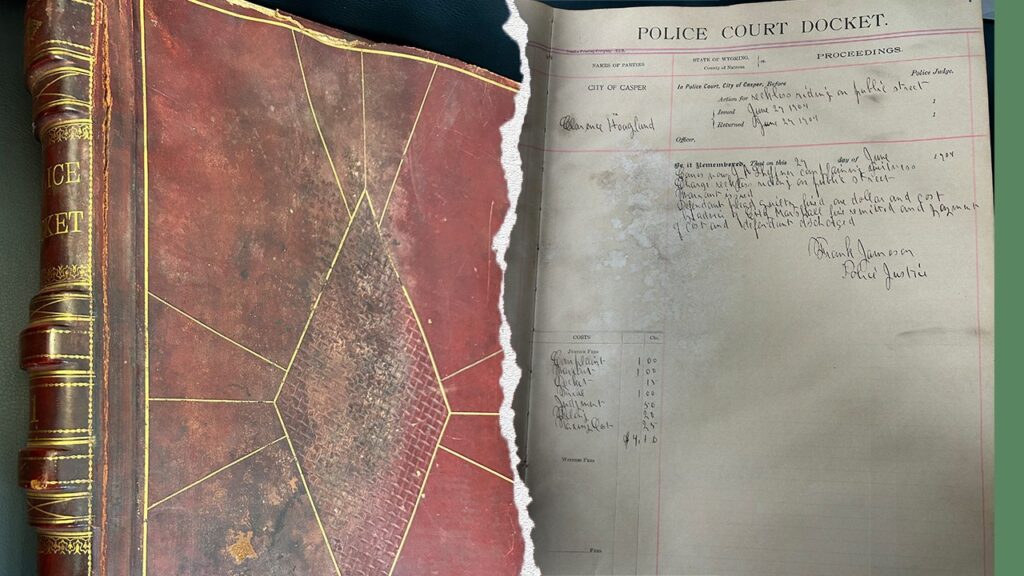 ICE
KET
1
POLICE COURT DOCKET.
NAMES OF PARTIES
STATE OF WYOMING,
County of Natrona
ss.
PROCEEDINGS.
Police Judge.
CITY OF CASPER
In Police Court, City of Casper, Before
Action for reckless riding on public street
Issued June 29 1904
Returned June 29 1904
Clarence Hoagland
Officer.
Be it Remembered, That on this 29 day of June 1904
Came now complaining
Charge reckless riding on public street
Warrant issued
Defendant plead guilty fined one dollar and cost
Marshall fine remitted and payment
of cost and Defendant discharged
Frank Jameson
Police Justice
COSTS Cts.
JUSTICE FEES
Complaint 1 00
1 00
Docket 15
Trial 1 00
Judgment 50
20
25
$4,10
WITNESS FEES
Fees